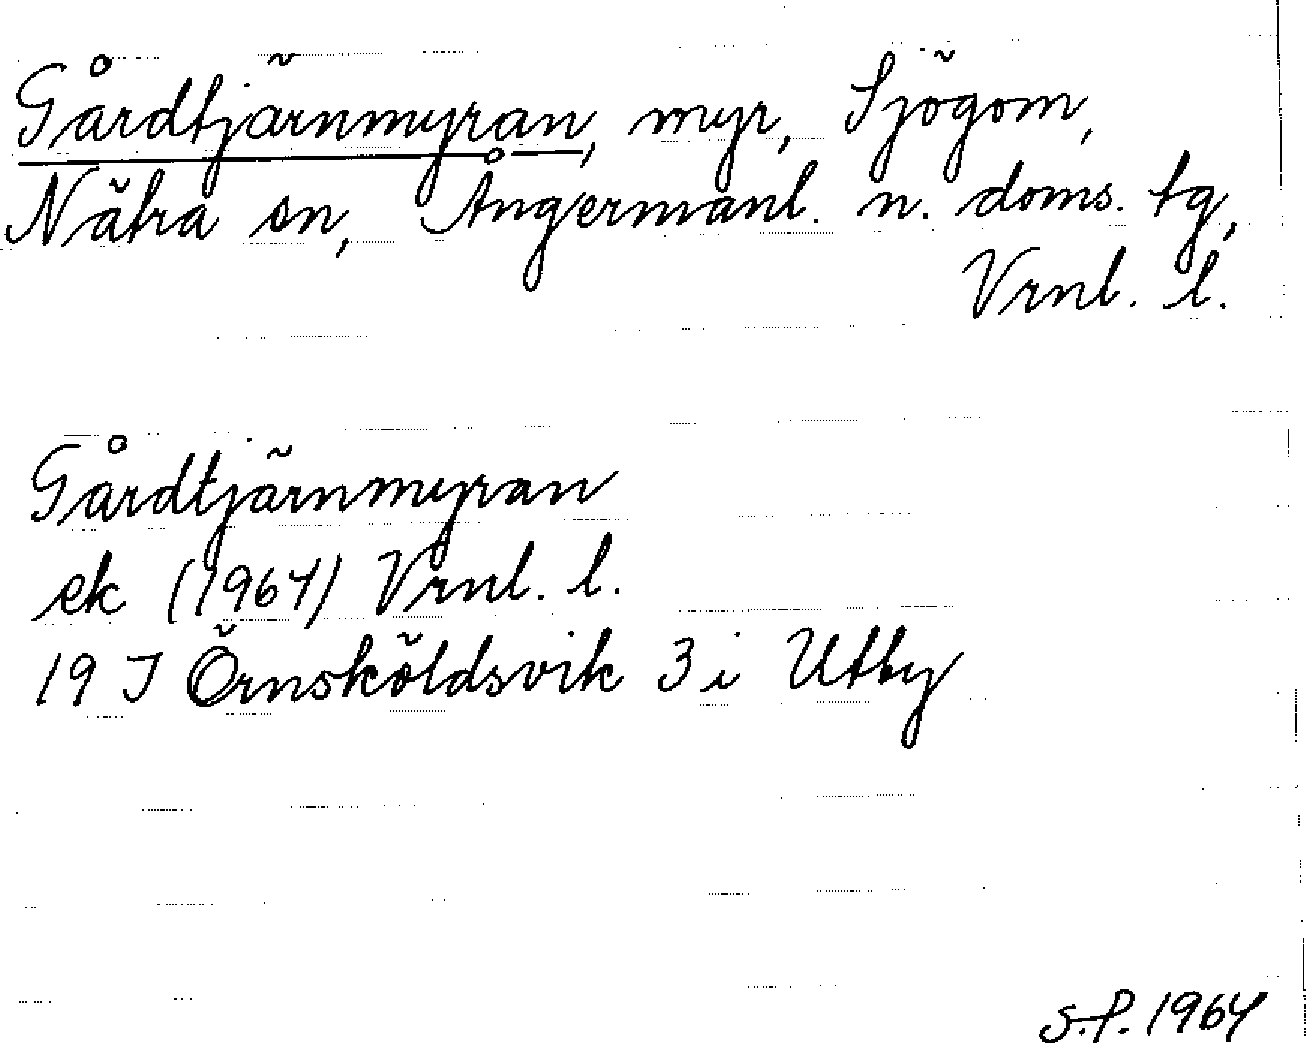 Gårdtjärnmyran, myr, Sjögom,
Nätra sn, Ångermanl. n. doms. tg,
Vrnl. l.
Gårdtjärnmyran
ek (1964) Vrnl. l.
19 J Örnsköldsvik 3 i Utby
S.P. 1964